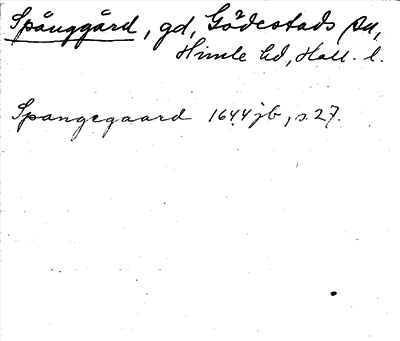 Spånggård, gd, Gödestads sn,
Himle hd, Hall. l.
Spangegaard 1644 jb, s. 27.